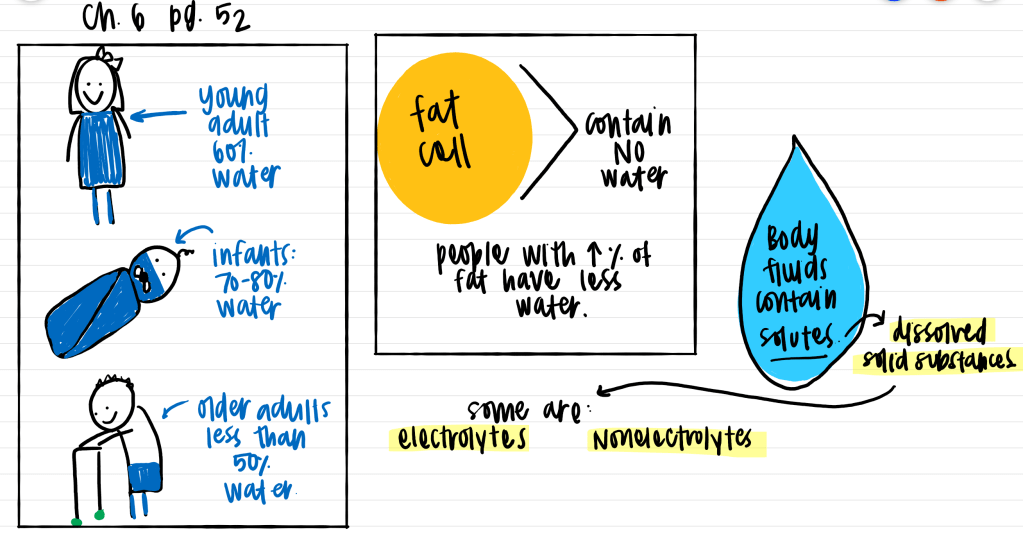 Ch. 6 pg. 52
young
adult
60%
water
infants:
70-80%
water
older adults
less than
50%
water.
fat
cell
contain
NO
water
people with ↑ % of
fat have less
water.
Body
fluids
contain
solutes
dissolved
solid substances
some are:
electrolytes
Nonelectrolytes